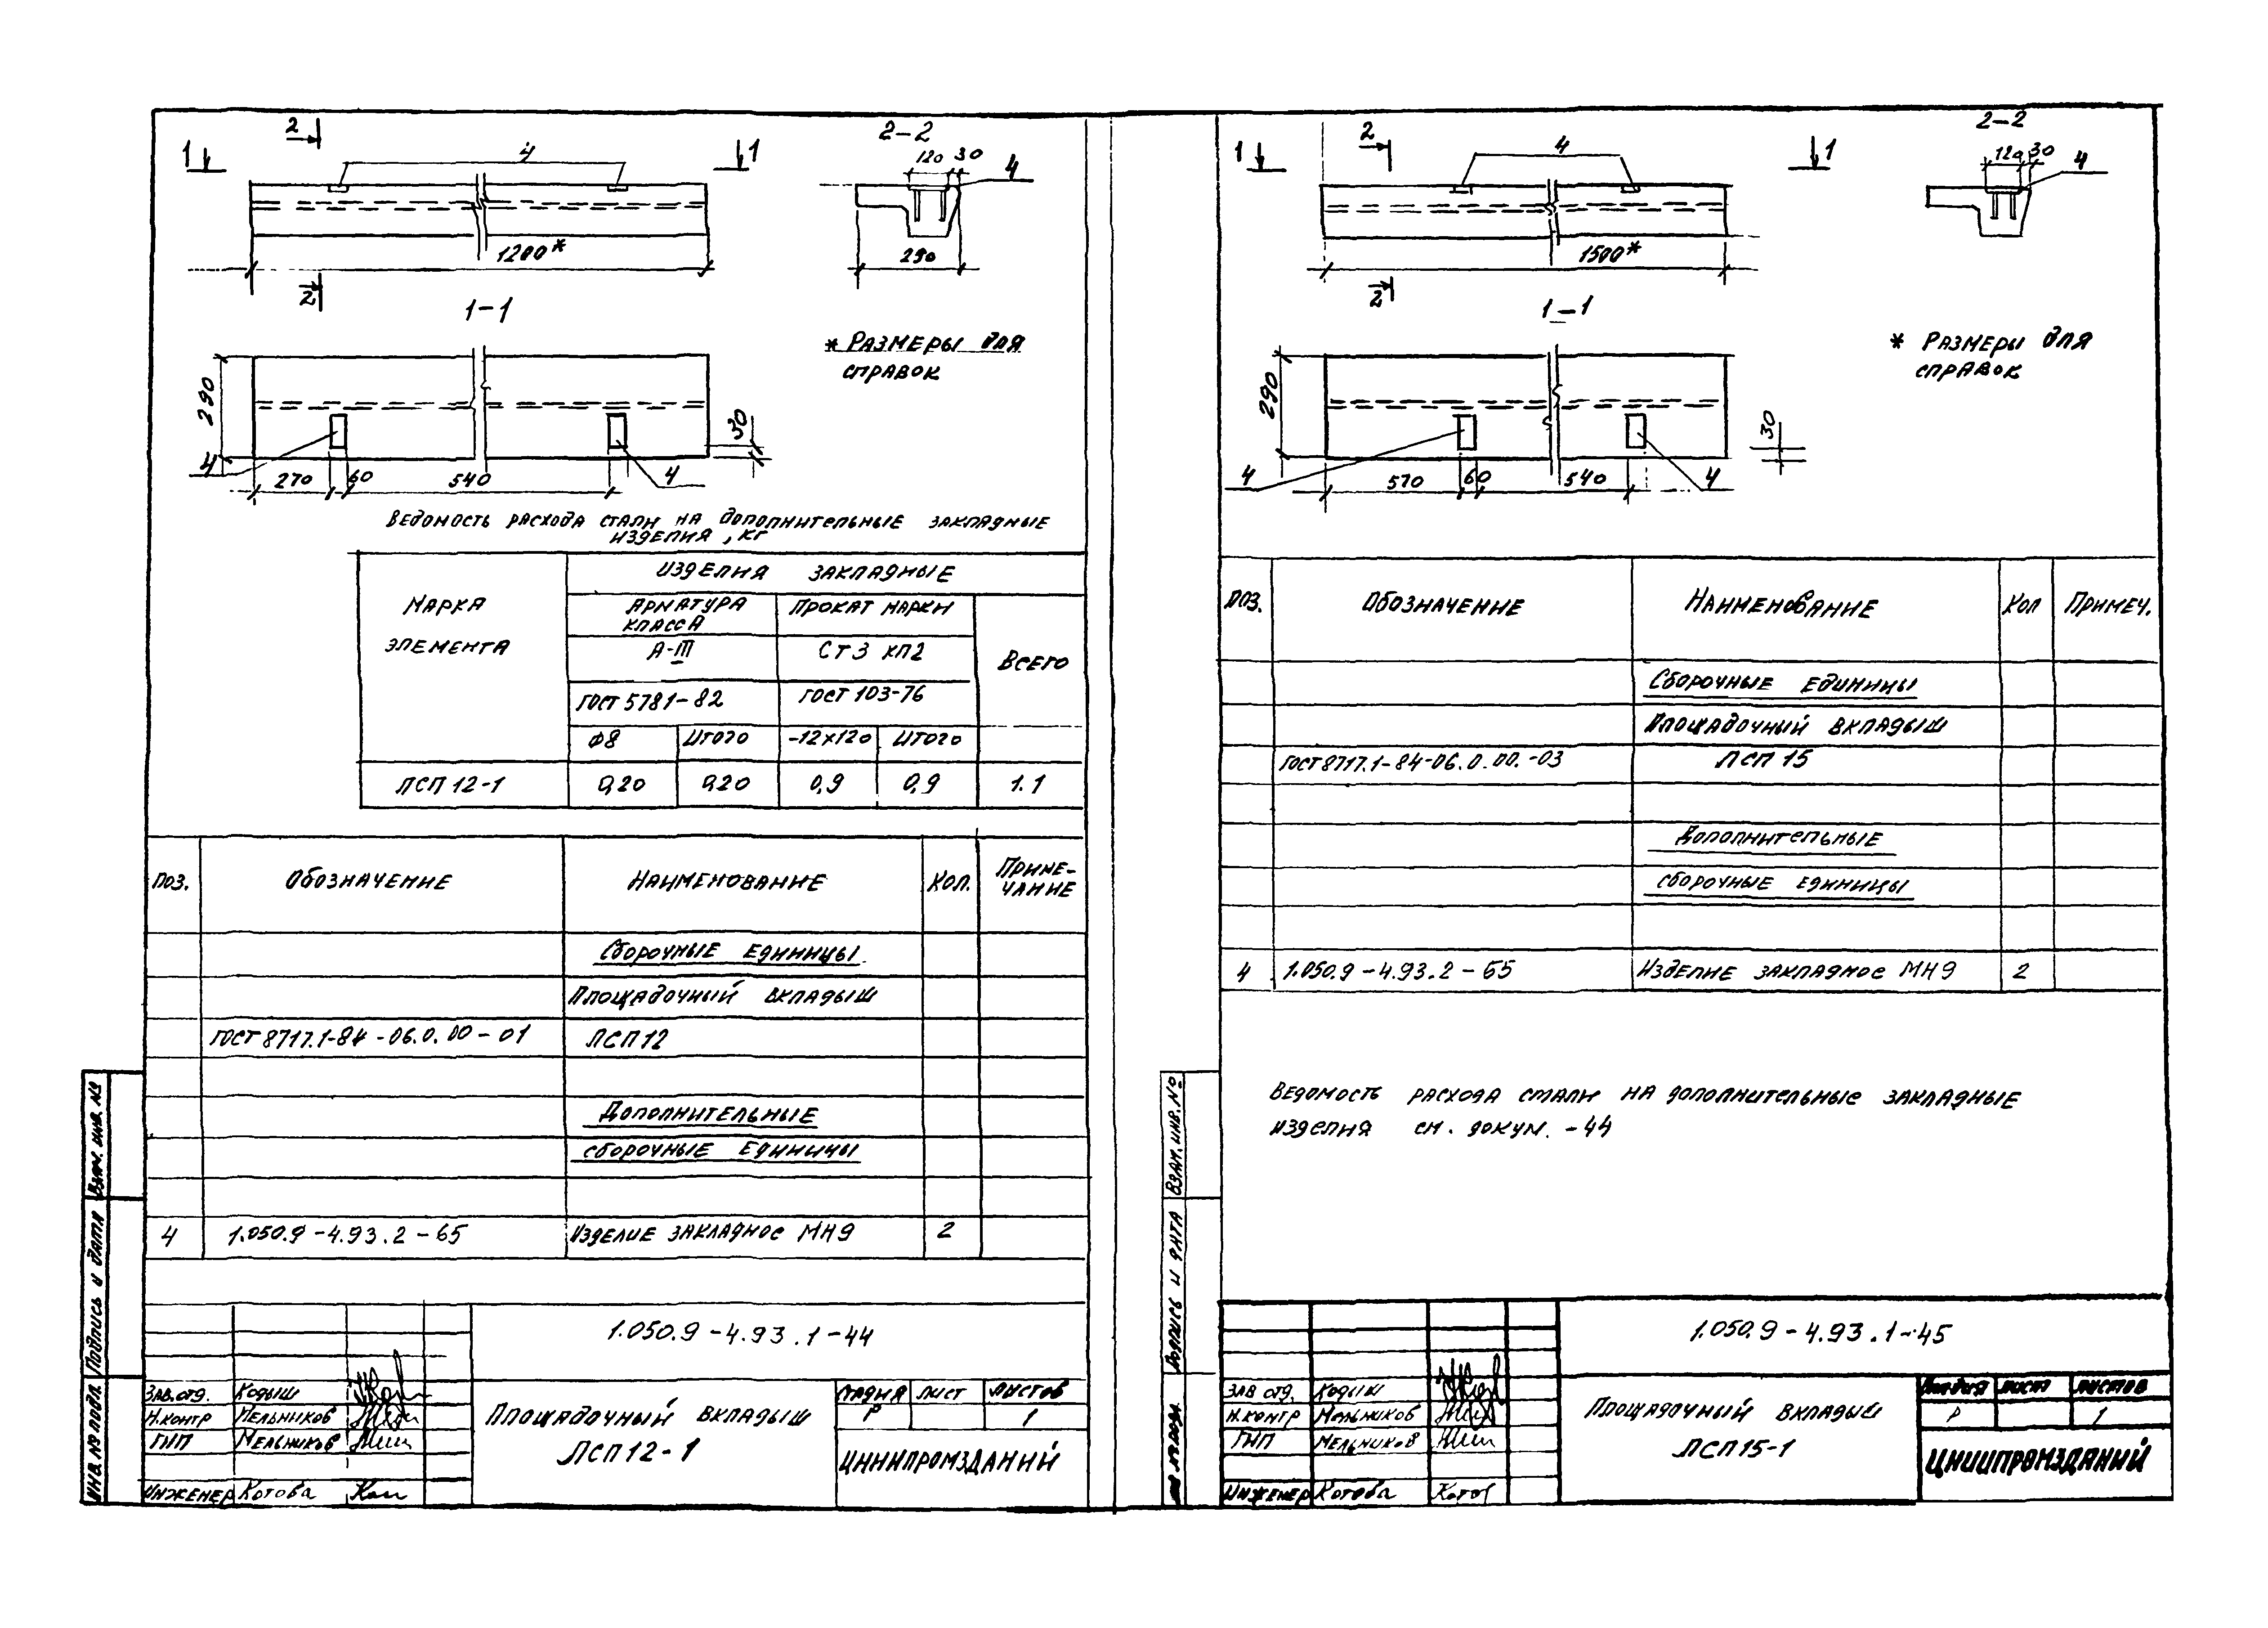 2
1
4
1
2-2
120
30
4
1200*
290
2
1-1
* Размеры для
справок
290
30
4
4
270
60
540
Ведомость расхода стали на дополнительные закладные
изделия, кг
Марка
элемента
Изделия закладные
Арматура
класса А
Прокат марки
А-III
Ст3 кп2
Всего
ГОСТ 5781-82
ГОСТ 103-76
Ф8
Итого
-12х120
Итого
ЛСП 12-1
0,20
0,20
0,9
0,9
1.1
Поз.
Обозначение
Наименование
Кол.
Приме-
чание
Сборочные единицы
Площадочный вкладыш
ГОСТ 8717.1-84-06.0.00-01
ЛСП 12
Дополнительные
сборочные единицы
4
1.050.9-4.93.2-65
Изделие закладное МН9
2
Взам. инв. №
Подпись и дата
Инв. № подл.
1.050.9-4.93.1-44
Зав.отд. Кодыш
Н.контр Мельников
ГИП Мельников
Инженер Котова
Площадочный вкладыш
ЛСП 12-1
Стадия
Лист
Листов
Р
1
ЦНИИПРОМЗДАНИЙ
2
1
4
1
2-2
120
30
4
1500*
2
1-1
* Размеры для
справок
290
30
4
4
570
60
540
Поз.
Обозначение
Наименование
Кол
Примеч.
Сборочные единицы
Площадочный вкладыш
ГОСТ 8717.1-84-06.0.00.-03
ЛСП 15
Дополнительные
сборочные единицы
4
1.050.9-4.93.2-65
Изделие закладное МН9
2
Ведомость расхода стали на дополнительные закладные
изделия см. докум. -44
Взам. инв. №
Подпись и дата
Инв. № подл.
1.050.9-4.93.1-45
Зав отд. Кодыш
Н.контр Мельников
ГИП Мельников
Инженер Котова
Площадочный вкладыш
ЛСП 15-1
Стадия
Лист
Листов
Р
1
ЦНИИПРОМЗДАНИЙ